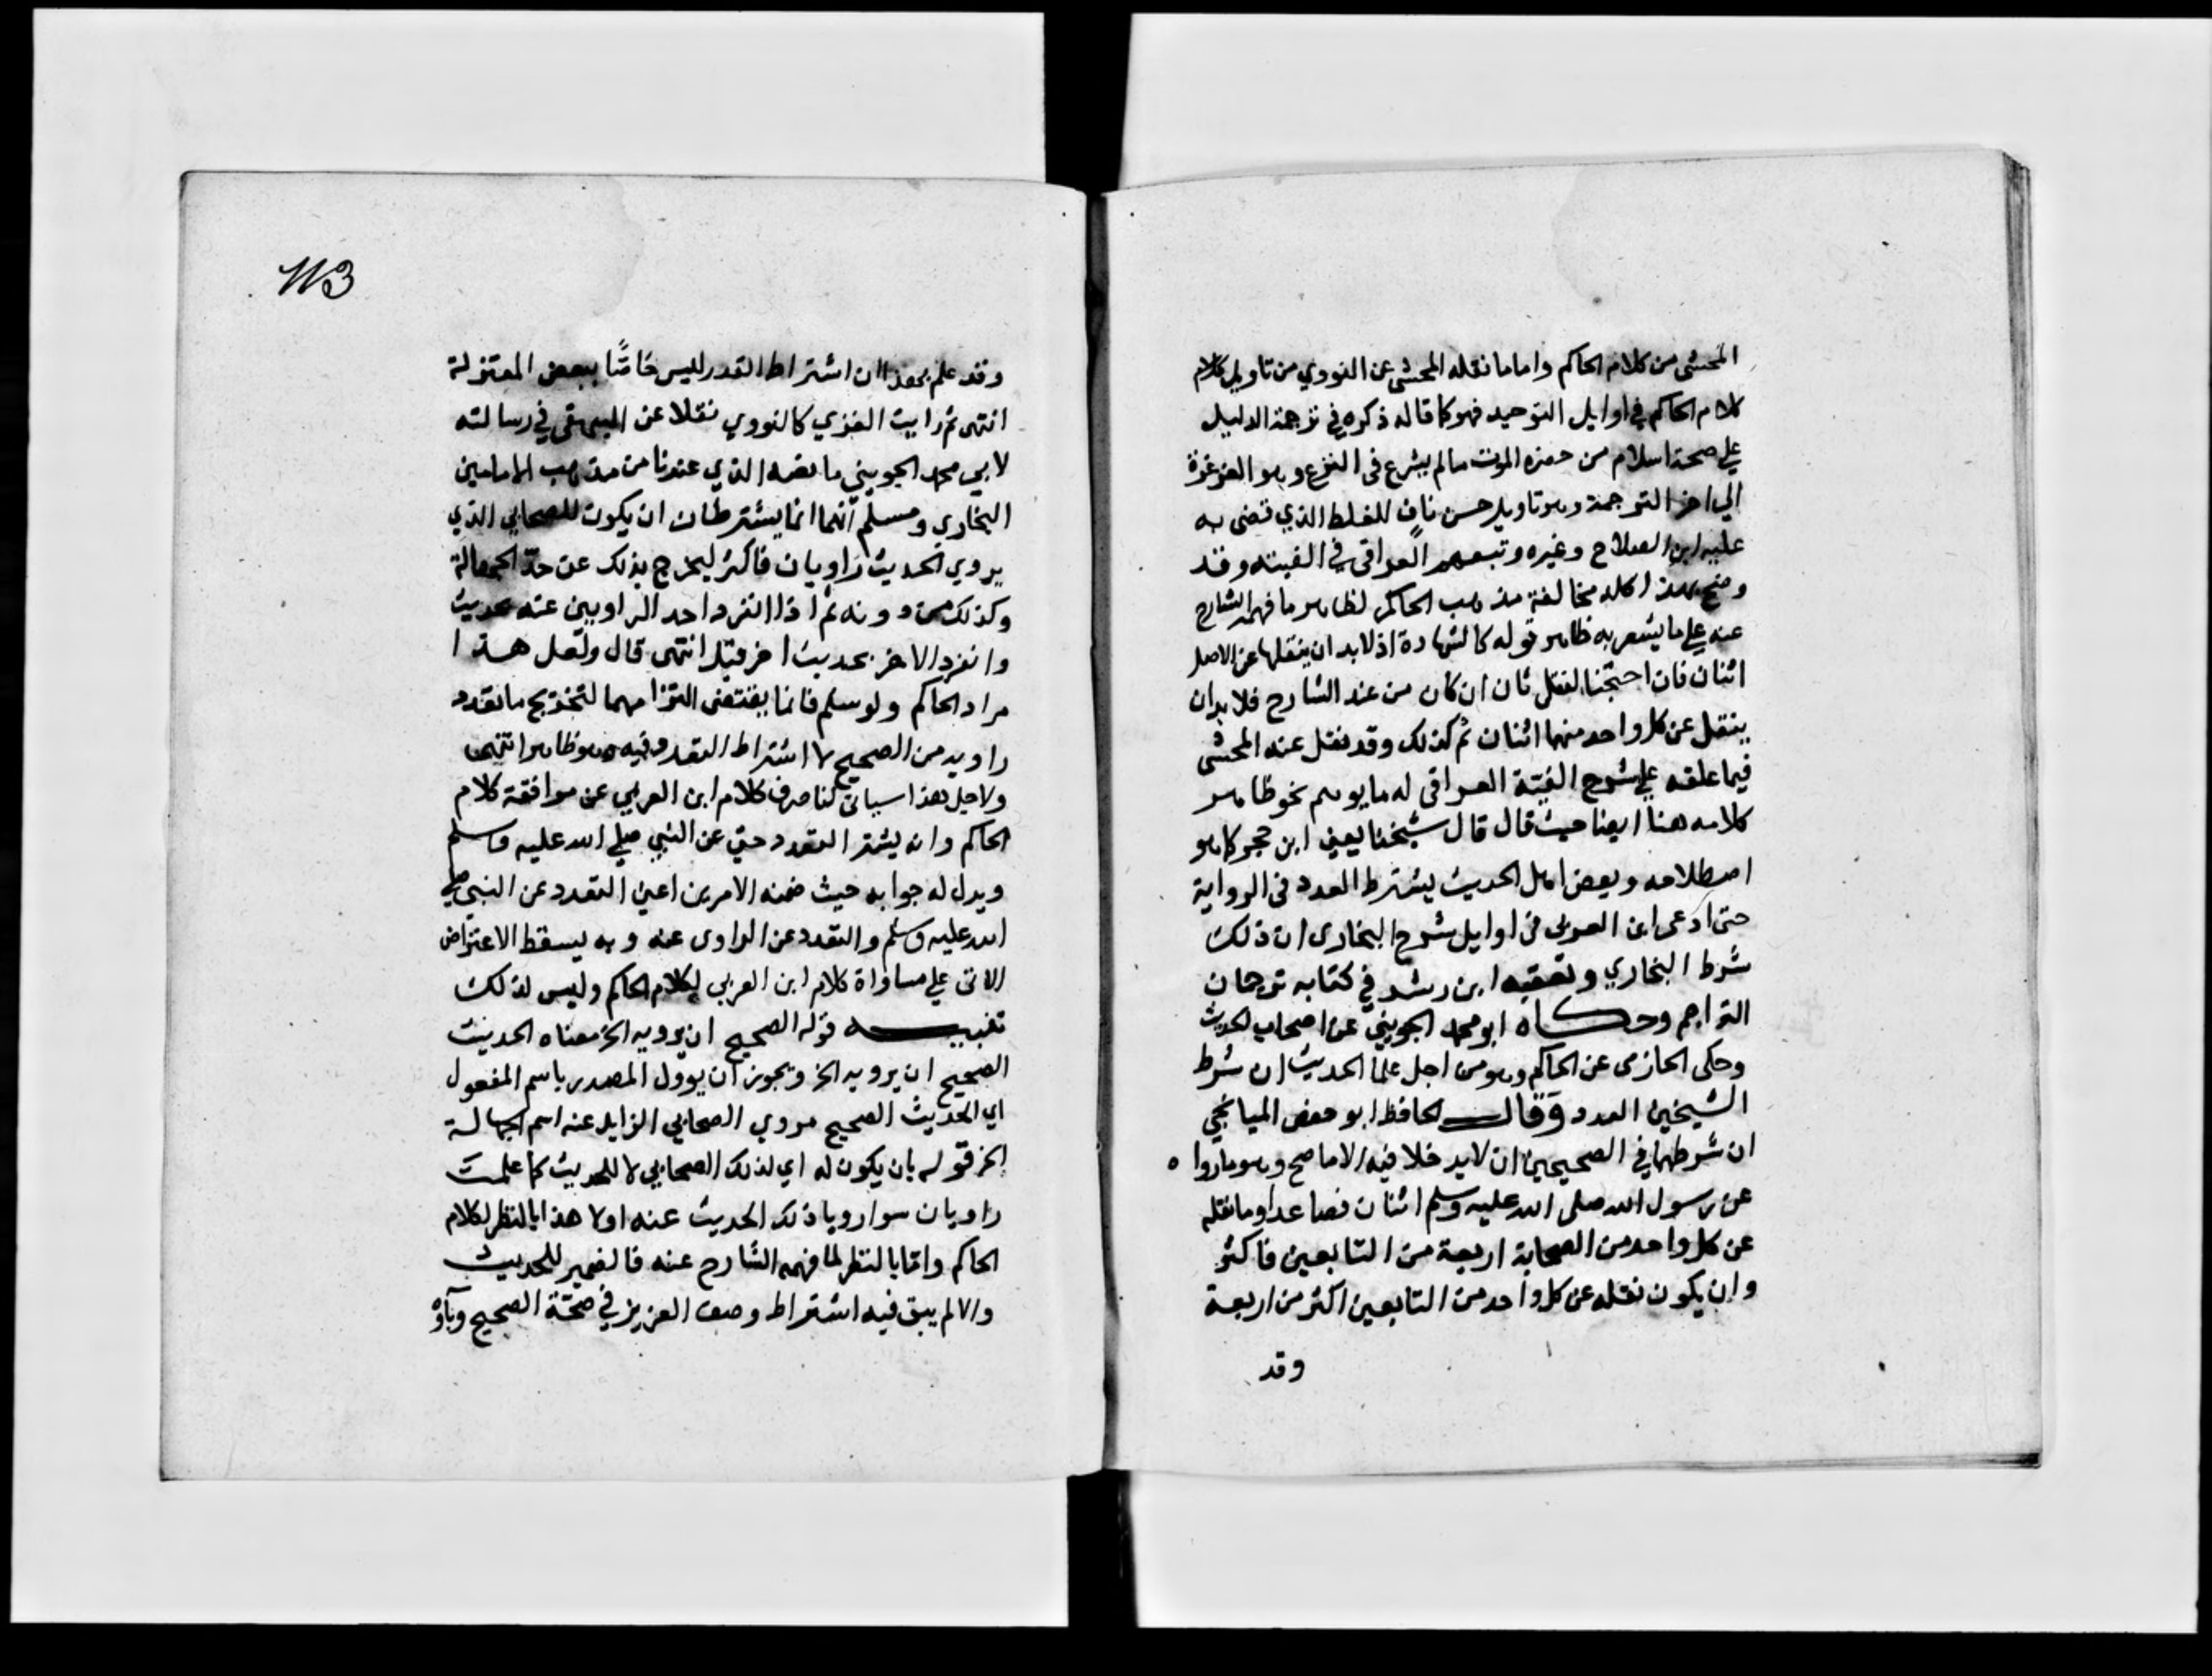 المحشى من كلام الحاكم واما ما نقله المحشى عن النووي من تاويل كلام
كلام الحاكم في اوايل التوحيد فهو كما قاله ذكره في ترجمة الدليل
علي صحة اسلام من حضره الموت ما لم يشرع فى النزع وهو الغرغرة
الي اخر الترجمة وهو تاويل حسن ناف للغلط الذي قضى به
عليه ابن الصلاح وغيره وتبعهم العراقى في الفيته وقد
وضح بهذا كله مخالفة مذهب الحاكم لظاهر ما فهمه الشارح
عنه علي ما يشعر به ظاهر قوله كالشهادة اذ لابد ان ينقلها عن الاصل
اثنان فان احتجنا لنقل ثان ان كان من عند الشارح فلابد ان
ينقل عن كل واحد منهما اثنان ثم كذلك وقد نقل عنه المحشى
فيما علقه علي شرح الفية العراقى له ما يوهم نحو ظاهر
كلامه هنا ايضا حيث قال قال شيخنا يعني ابن حجر كما هو
اصطلاحه وبعض اهل الحديث يشترط العدد فى الرواية
حتى ادعى ابن العربى فى اوايل شرح البخارى ان ذلك
شرط البخاري وتعقبه ابن رشد في كتابه ترجمان
التراجم وحكاه ابو محمد الجويني عن اصحاب الحديث
وحكى الحازمى عن الحاكم وهو من اجل علما الحديث ان شرط
الشيخين العدد وقال الحافظ ابو حفص الميانجي
ان شرطهما في الصحيحين ان لا يدخلا فيه الا ما صح وهو ما روا ه
عن رسول الله صلى الله عليه وسلم اثنان فصاعدا وما نقله
عن كل واحد من الصحابة اربعة من التابعين فاكثر
وان يكون نقله عن كل واحد من التابعين اكثر من اربعة
وقد
113
وقد علم بهذا ان اشتراط التعدد ليس خاصًّا ببعض المعتزلة
انتهى ثم رايت الغزي كالنووي نقلا عن البيهقى في رسالته
لابي محمد الجويني ما نصه الذي عندنا من مذهب الامامين
البخاري ومسلم انهما انما يشترطان ان يكون للصحابي الذي
يروي الحديث راويان فاكثر ليخرج بذلك عن حد الجهالة
وكذلك من دونه ثم اذا انفرد احد الراويين عنه بحديث
وانفرد الاخر بحديث اخر قبل انتهى قال ولعل هذا
مراد الحاكم ولو سلم فانما يقتضى التزامهما لتخريج ما تعدد
راويه من الصحيح لا اشتراط التعدد فيه وهو ظاهر انتهى
ولاجل هذا سياتى لنا صرف كلام ابن العربي عن موافقة كلام
الحاكم وانه يشتر التعدد حتى عن النبي صلي الله عليه وسلم
ويدل له جوابه حيث ضمنه الامرين اعني التعدد عن النبي صلي
الله عليه وسلم والتعدد عن الراوى عنه وبه يسقط الاعتراض
الاتى علي مساواة كلام ابن العربي لكلام الحاكم وليس لذلك
تنبيه قوله الصحيح ان يرويه الخ معناه الحديث
الصحيح ان يرويه الخ ويجوز ان يوول المصدر باسم المفعول
اي الحديث الصحيح مروي الصحابي الزايل عنه اسم الجهالة
الخ قوله بان يكون له اي لذلك الصحابي لا للحديث كما علمت
راويان سوا رويا ذلك الحديث عنه اولا هذا بالنظر لكلام
الحاكم واما بالنظر لما فهمه الشارح عنه فالضمير للحديث
والا لم يبق فيه اشتراط وصف العزيز في صحة الصحيح